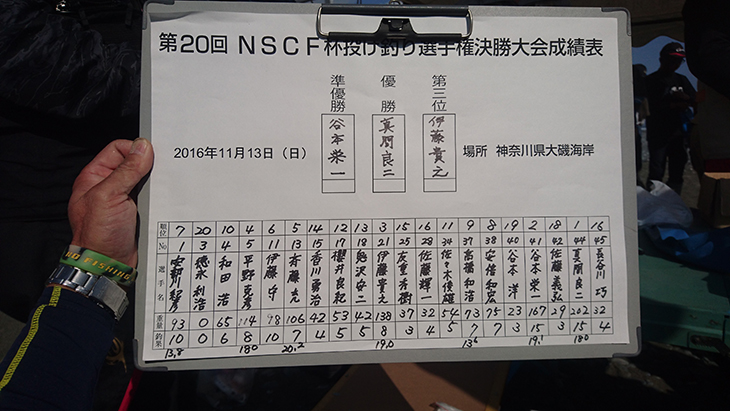 第20回 NSCF杯投げ釣り選手権決勝大会成績表
準優勝 優勝 第三位
谷本栄一 真間良二 伊藤貴之
2016年11月13日(日) 場所 神奈川県大磯海岸
順位 7 20 10 4 6 5 14 12 13 3 15 16 11 9 8 19 2 18 1 16
No 1 3 4 5 11 13 15 17 18 21 25 28 34 37 38 40 41 42 44 45
選手名 徳永利浩 和田浩 平野克彦 伊藤守 斉藤克 香川勇治 櫻井良紀 伊藤貴之 友重秀樹 佐藤輝一 佐々木俊雄 高橋和浩 安倍和広 谷本洋 谷本栄一 佐藤義弘 真間良二 長谷川巧
重量 93 0 65 114 98 106 42 53 42 138 37 32 54 73 75 23 167 29 202 32
釣果 10 0 6 8 10 7 4 5 5 8 3 4 5 7 7 3 15 3 15 4
13.8 180 20.2 19.0 13.6 19.1 180
NO FISHING